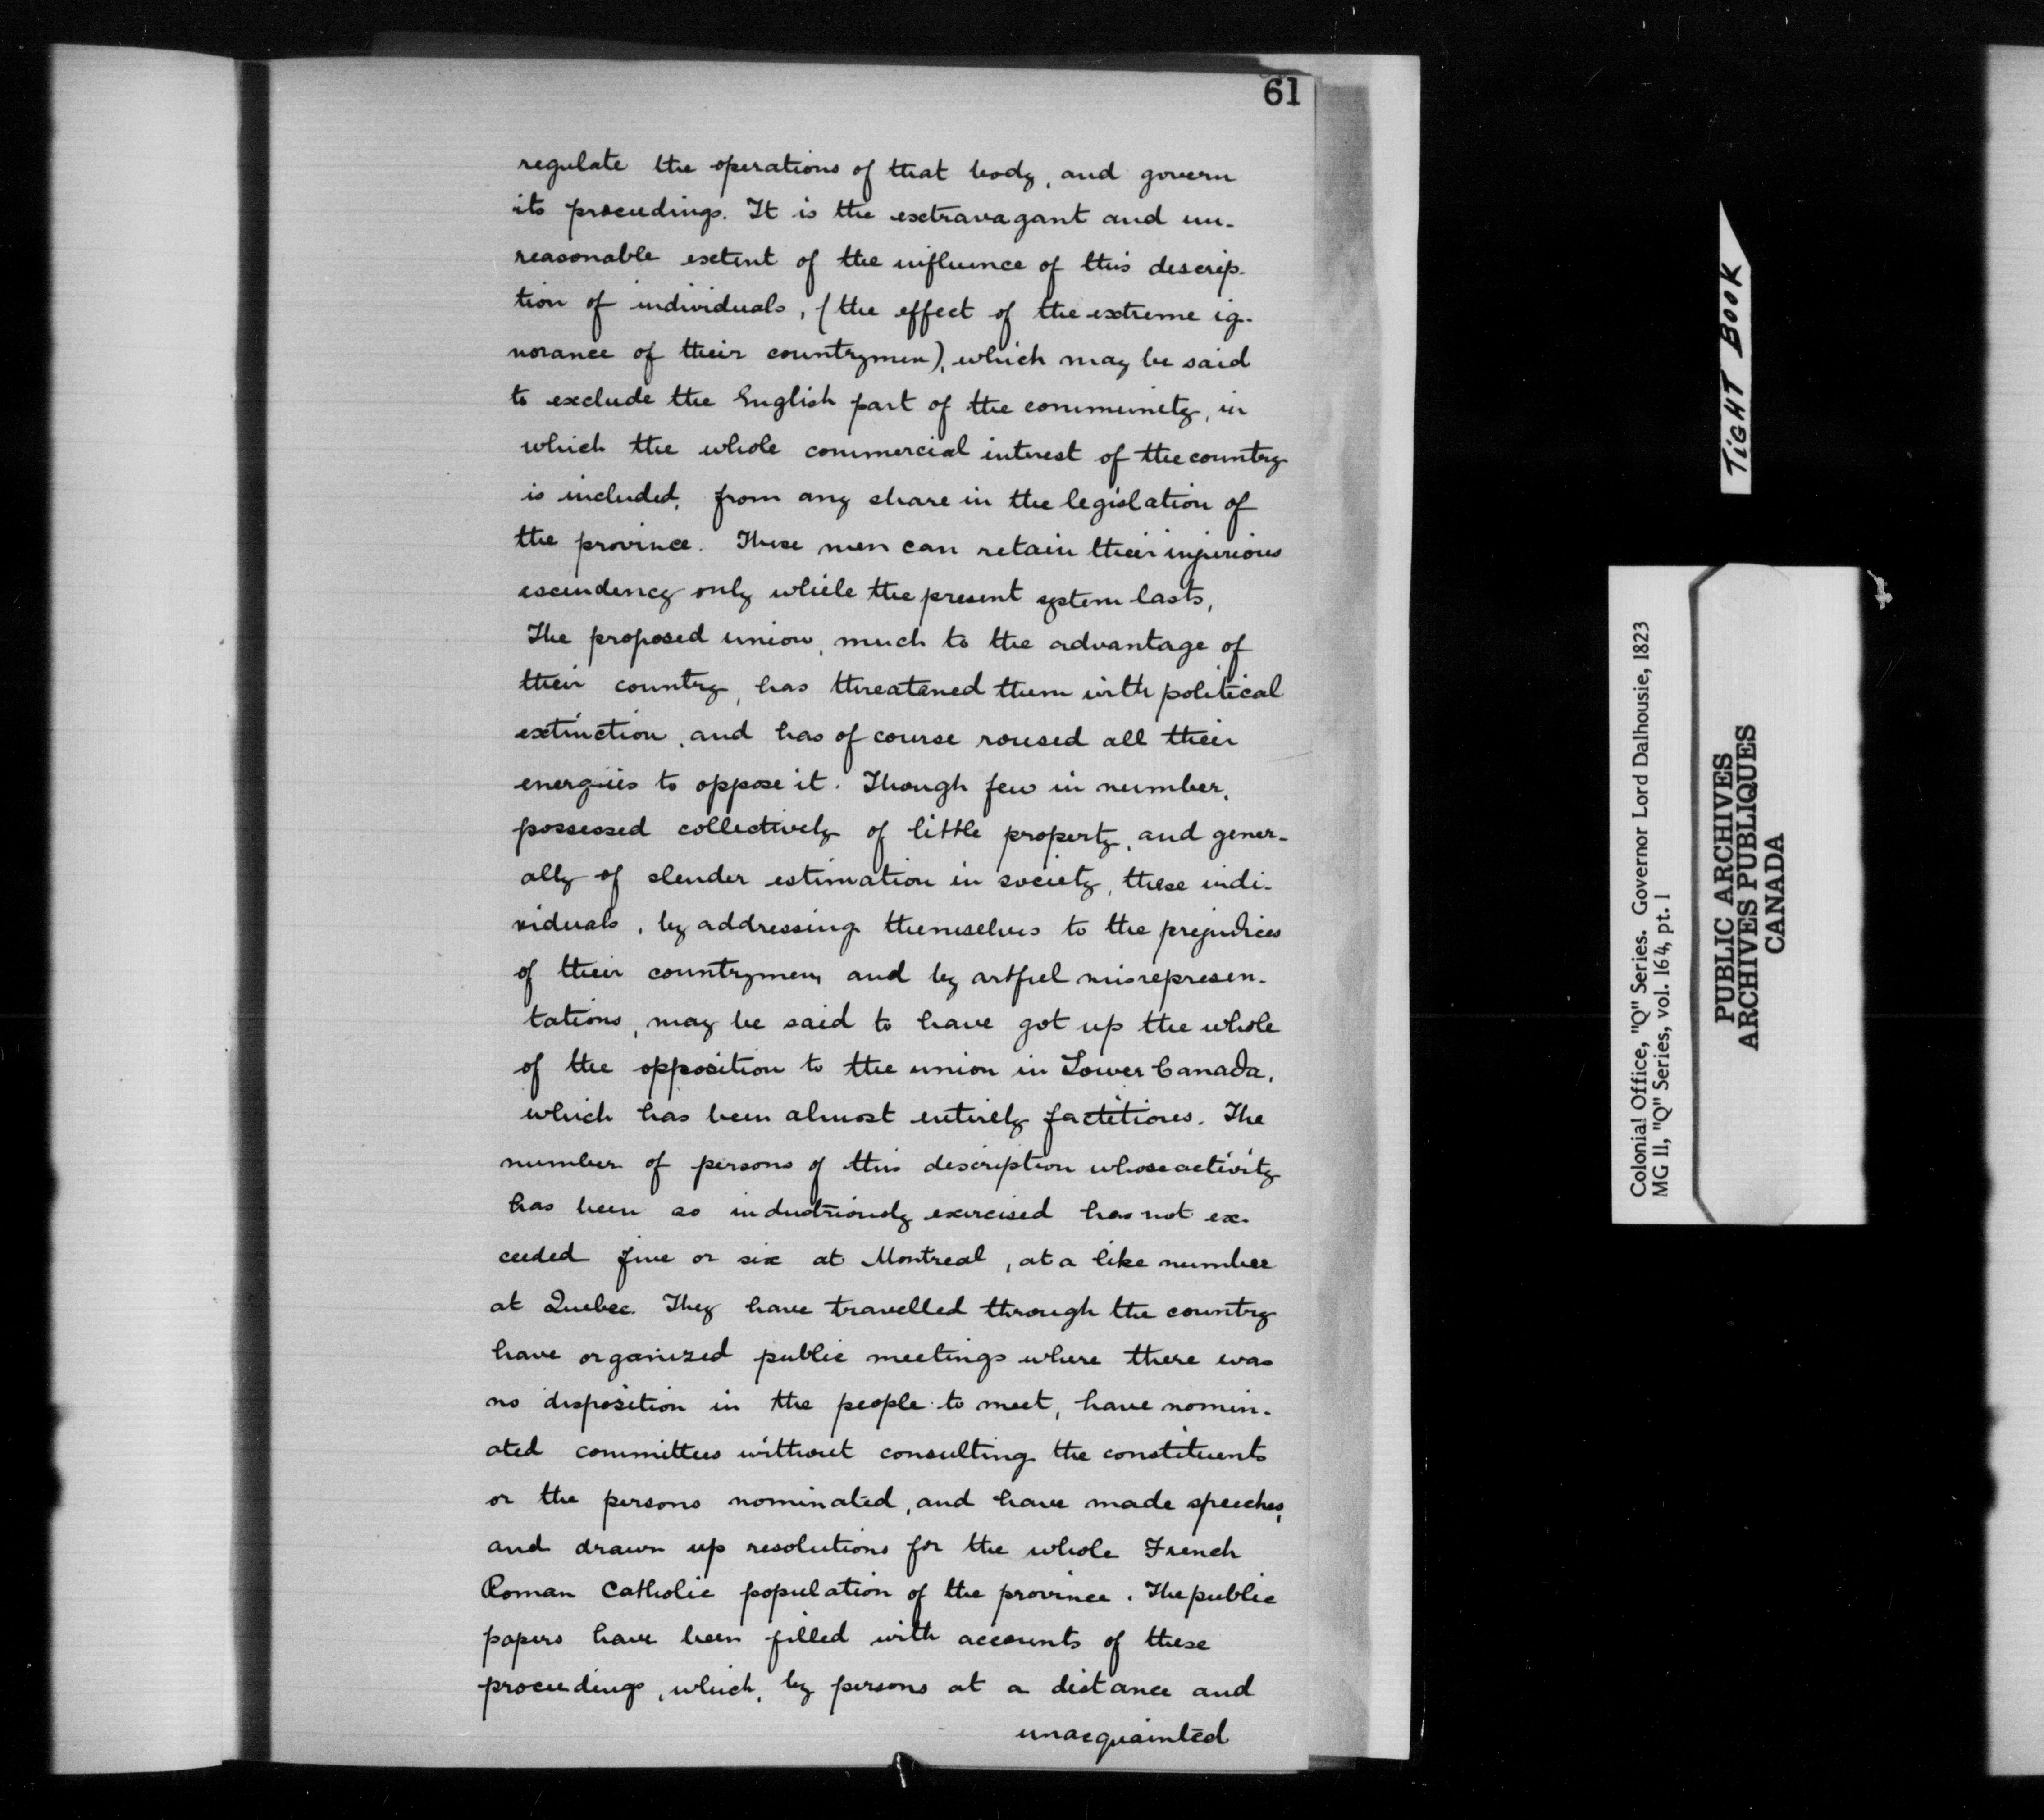 61
regulate the operations of that body, and govern
its proceedings. It is the extravagant and un-
reasonable extent of the influence of this descrip-
tion of individuals, (the effect of the extreme ig-
norance of their countrymen), which may be said
to exclude the English part of the community, in
which the whole commercial interest of the country
is included, from any share in the legislation of
the province. These men can retain their injurious
escendency only while the present system lasts,
The proposed union, much to the advantage of
their country, has threatened them with political
extinction, and has of course roused all their
energies to oppose it. Though few in number,
possessed collectively of little property, and gener-
ally of slender estimation in society, these indi-
viduals, by addressing themselves to the prejudices
of their countrymen, and by artful misrepresen-
tations, may be said to have got up the whole
of the opposition to the union in Lower Canada,
which has been almost entirely factitious. The
number of persons of this description whose activity
has been so industriously exercised has not ex-
ceeded five or six at Montreal, at a like number
at Quebec. They have travelled through the country
have organized public meetings where there was
no disposition in the people to meet, have nomin-
ated committees without consulting the constituents
or the persons nominated, and have made speeches,
and drawn up resolutions for the whole French
Roman Catholic population of the province. The public
papers have been filled with accounts of these
proceedings, which, by persons at a distance and
unacquainted
TIGHT BOOK
Colonial Office, "Q" Series. Governor Lord Dalhousie, 1823
MG 11, "Q" Series, vol. 164, pt. 1
PUBLIC ARCHIVES
ARCHIVES PUBLIQUES
CANADA